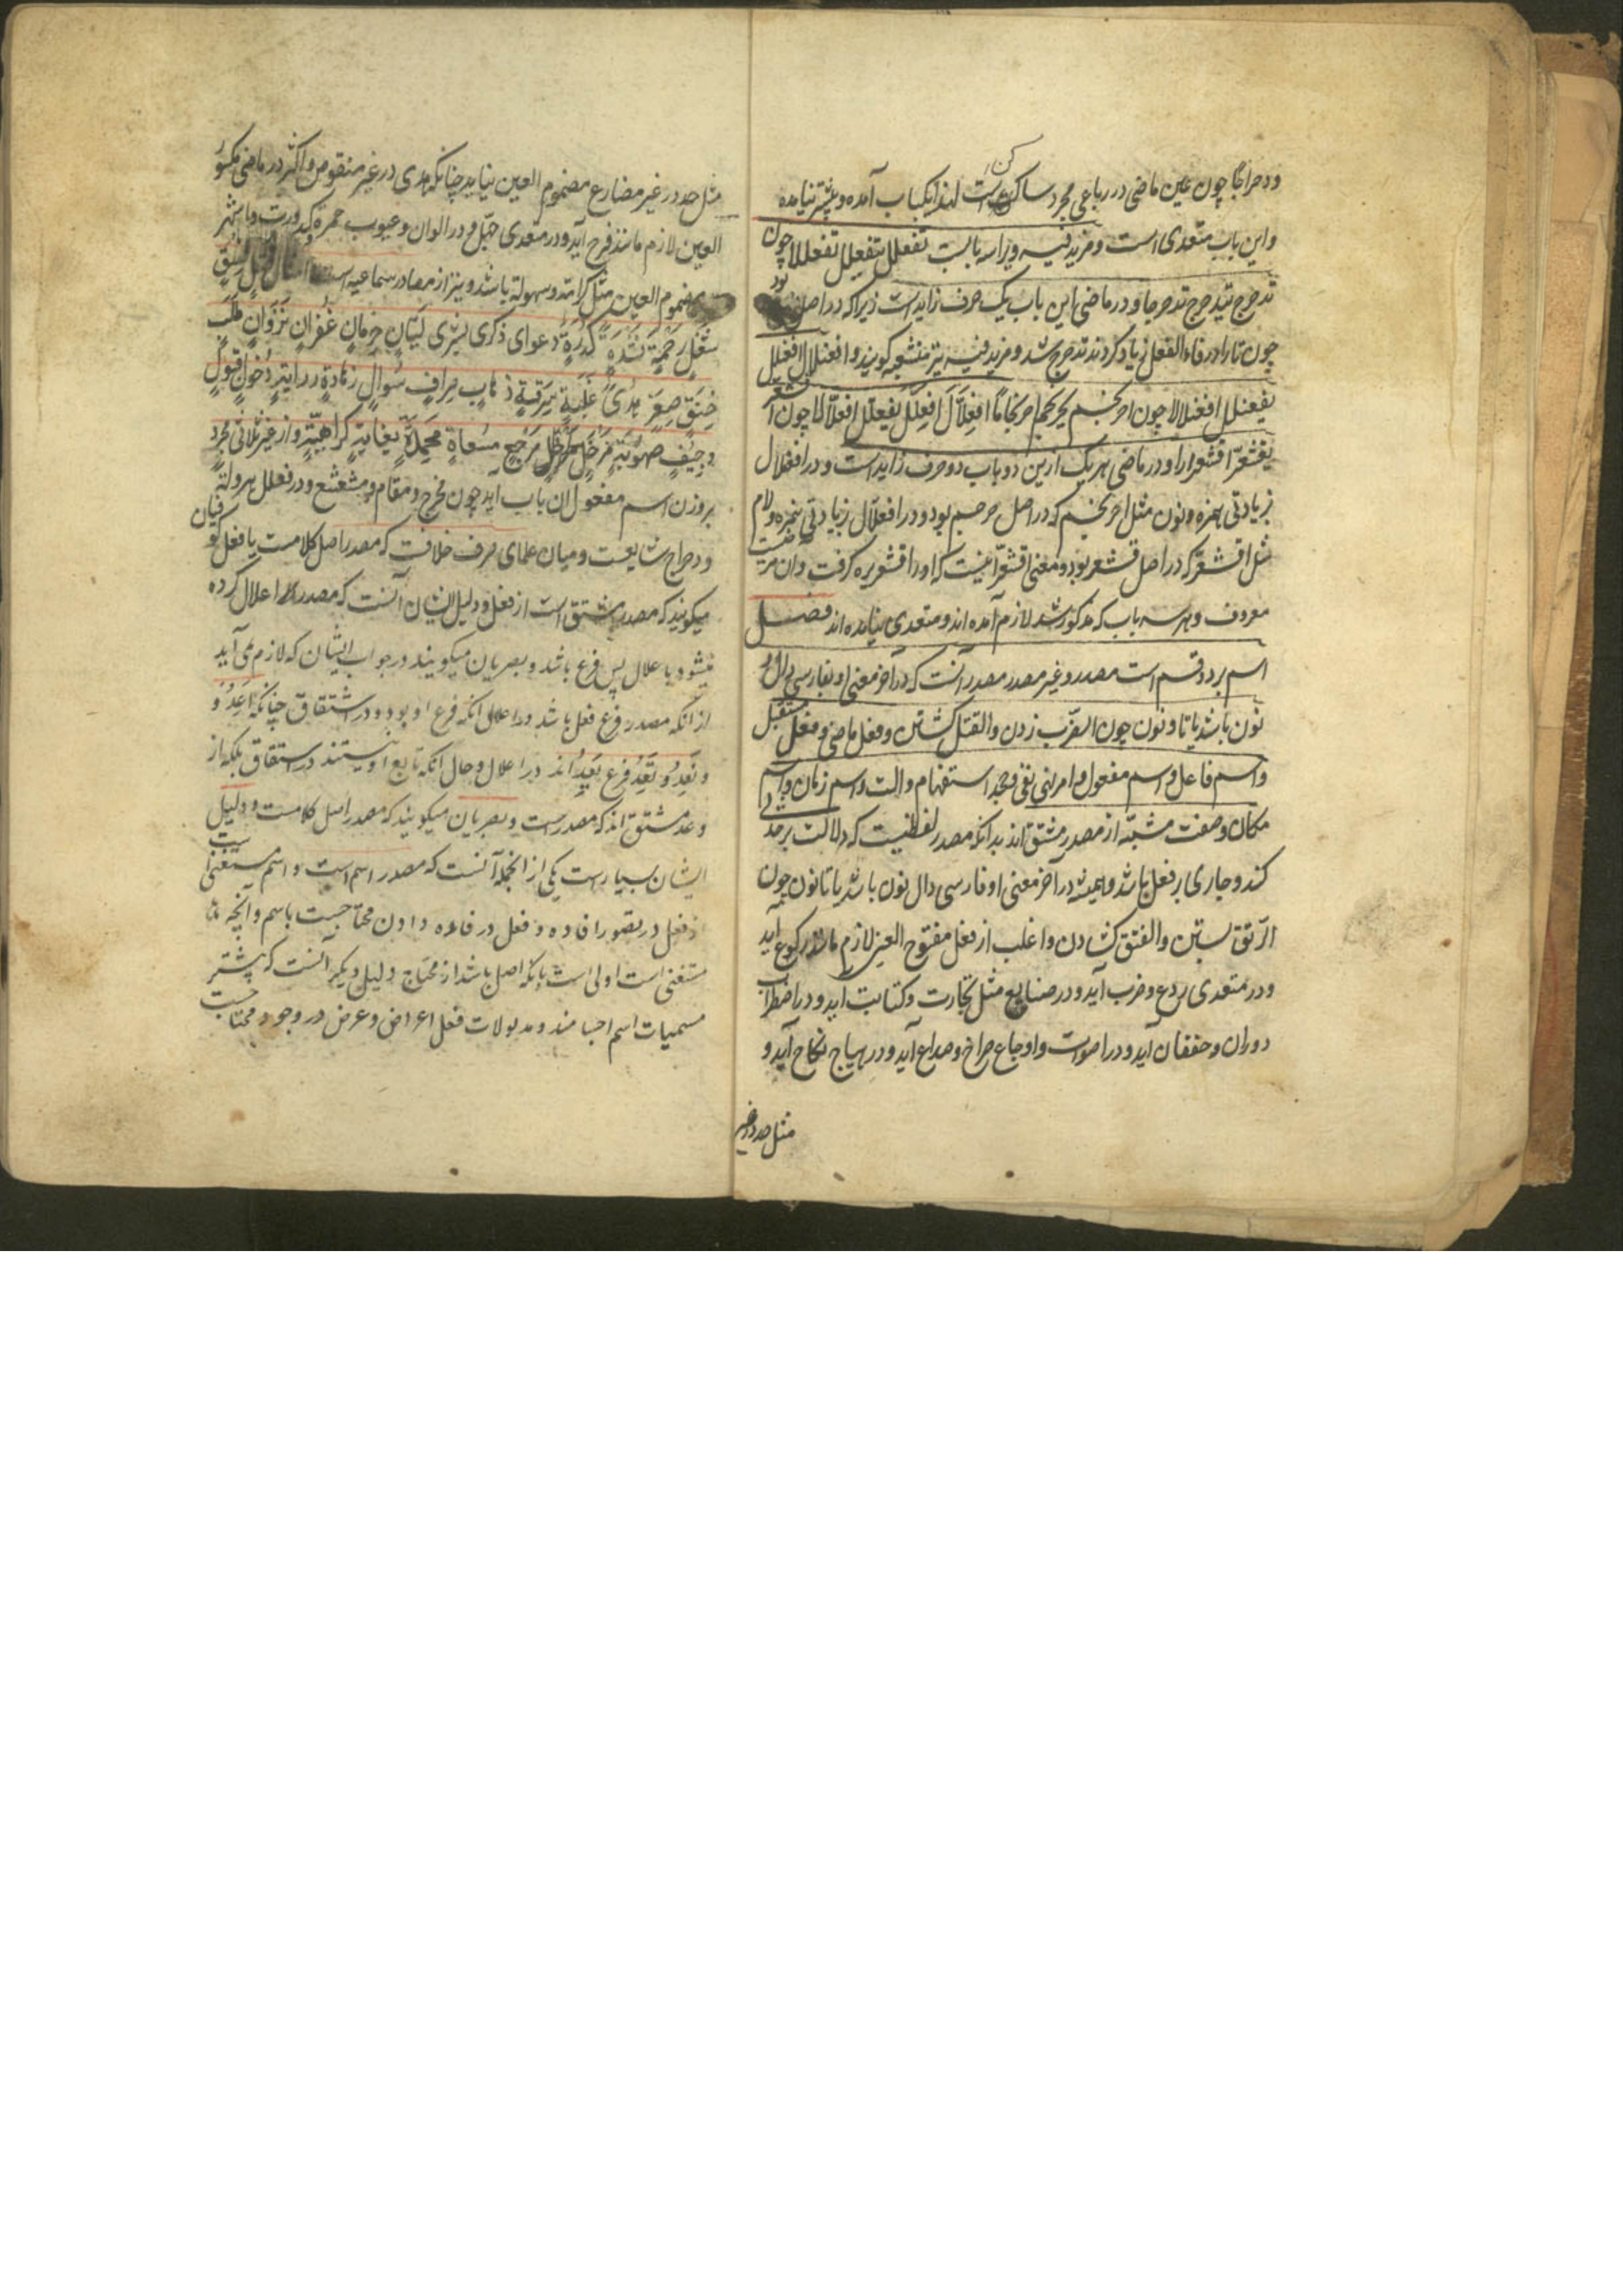 ودحراجا چون عین ماضی در رباعی مجرد ساکن است لهذا یکباب آمده و بیشتر نیامده
واین باب متعدی است و مزید فیه ویرا سه بابست تفعلل یتفعلل تفعللا چون
تدحرج یتدحرج تدحرجا و در ماضی این باب یک حرف زایداست زیراکه در اصل دحرج بود
چون تا را در فاء الفعل زیاد کردند تدحرج شد و مزید فیه نیز منشعبه کویند و افعنلال افعنلل
یفعنلل افعنلالا چون احرنجم یحرنجم احرنجاما افعلّال افعلل یفعلل افعلّالا چون اقشعر
یقشعرّ اقشعرارا و در ماضی هر یک ازین دو باب دو حرف زایداست و در افعنلال
زیادتی همزه و نون مثل احرنجم که در اصل حرجم بود و در افعلّال زیادتی همزه و لام
مثل اقشعرّ که در اصل قشعر بود و معنی اقشعرّ اینست که اورا قشعریره کرفت و آن مرضیست
معروف و هر سه باب که مذکور شد لازم آمده اند و متعدی نیامده اند فصل
اسم بر دو قسم است مصدر و غیر مصدر مصدر آنست که در آخر معنی او بفارسی دال و
نون باشد یا تا و نون چون الضرب زدن والقتل کشتن و فعل ماضی و فعل مستقبل
و اسم فاعل و اسم مفعول و امر نهی نفی و جحد استفهام و الت و اسم زمان و اسم
مکان و صفت مشبّه از مصدر مشتق اند بدانکه مصدر لفظیست که دلالت بر حدثی
کند و جاری بر فعل باشد و همیشه در آخر معنی او فارسی دال نون باشد یا تا نون چون
الرّتق بستن والفتق کشادن و اغلب از فعل مفتوح العین لازم مانند رکوع آید
و در متعدی ردع و ضرب آید و در صنایع مثل تجارت و کتابت اید و در اضطراب
دوران و خفقان آید و در اصوات و اوجاع صراخ و صداع آید و در هیاج نکاح آید و
مثل حد در غیر
مثل حد در غیر مضارع مضموم العین نیاید چنانکه هدی در غیر منقوص و اکثر در ماضی مکسور
العین لازم مانند فرح آید و در متعدی جهل و در الوان و عیوب حمره کدورت و ما شهر
مضموم العین مثل کرامة و سهولة باشد و نیز از مصادر سماعیه است امثال قتل فسق
شغل رحمة نشدة کدرة دعوای ذکری بشری لیّان حرمان غفران نزوان طلب
خنق صغر هدی غلبة سرقة ذهاب صراف سوال زهادة درایة دخول قبول
وجیف صهوبة مدخل مرجع مسعاة محمدة بغایة کراهیّة و از غیر ثلاثی مجرد
بروزن اسم مفعول ان باب آید چون مخرج و مقام و مشعشع و در فعلل هرولة
ودحراج شایعست و میان علمای صرف خلافت که مصدر اصل کلامست یا فعل کوفیان
میکویند که مصدر مشتق است از فعل و دلیل ایشان آنست که مصدر را اعلال کرده
میشود باعلال پس فرع باشد و بصریان میکویند در جواب ایشان که لازم نمی آید
از آنکه مصدر فرع فعل باشد در اعلال انکه فرع او بود در اشتقاق چنانکه اعد و
و نعد و تعد فرع یعد اند در اعلال و حال انکه تابع او نیستند در اشتقاق بلکه از
وعد مشتق اند که مصدر است و بصریان میکویند که مصدر اصل کلامست و دلیل
ایشان بسیارست یکی از انجمله آنست که مصدر اسم است و اسم مستغنیست
از فعل در تصور افاده و فعل در فایده دادن محتاجست باسم و آنچه
مستغنی است اولی است بانکه اصل باشد از محتاج دلیل دیکر آنست که بیشتر
مسمیات اسم اجسامند و مدلولات فعل اعراض و عرض در وجود محتاجست